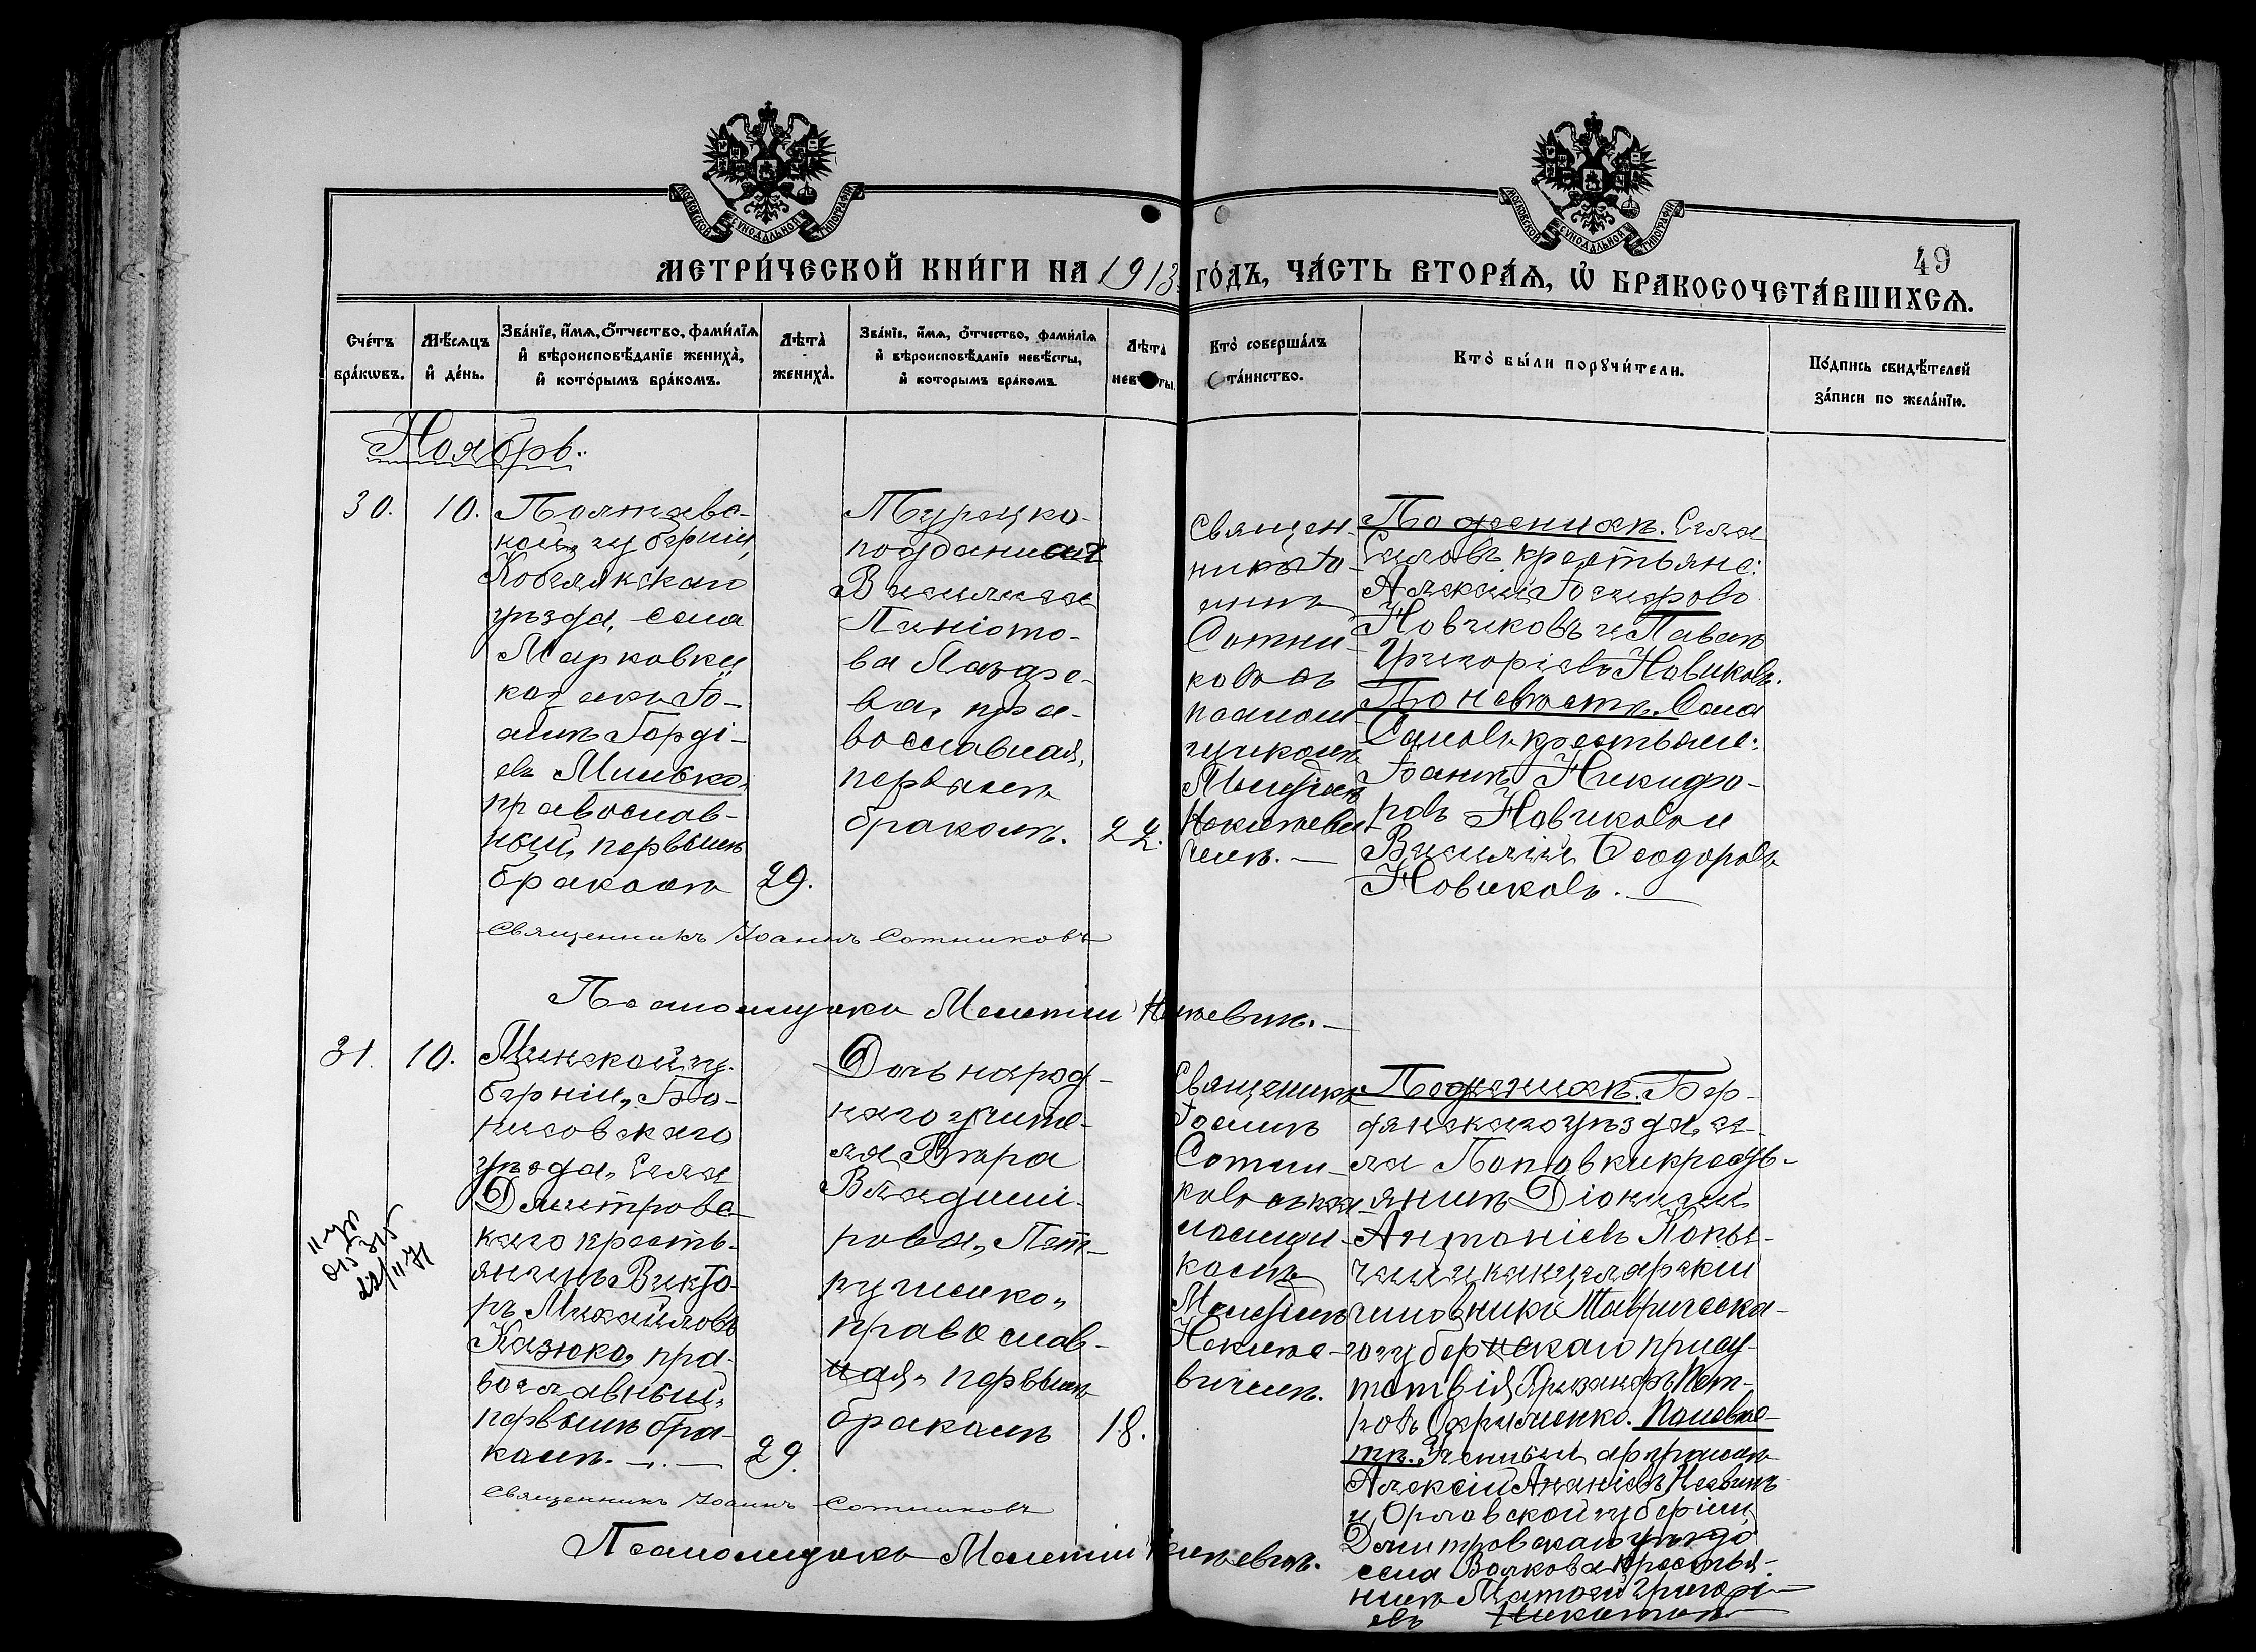 МОСКОВСКОЙ СѴНОДАЛЬНОЙ ТИПОГРАФІИ
МОСКОВСКОЙ СѴНОДАЛЬНОЙ ТИПОГРАФІИ
49
МЕТРИ́ЧЕСКОЙ КНИ́ГИ НА 1913 ГО́ДЪ, ЧА́СТЬ ВТОРА́Я, Ѡ БРАКОСОЧЕТА́ВШИХСЯ.
Сче́тъ
бра́кѡвъ.
Мѣ́сяцъ
и де́нь.
Зва́ніе, и́мя, о́тчество, фами́лія
и вѣроисповѣ́даніе жениха̀,
и кото́рымъ бра́комъ.
Лѣта̀
жениха̀.
Зва́ніе, и́мя, о́тчество, фами́лія
и вѣроисповѣ́даніе невѣ́сты,
и которымъ бракомъ.
Лѣта̀
невѣсты.
Кто̀ соверша́лъ
та́инство.
Кто̀ бы́ли порꙋчи́тели.
По́дпись свидѣ́телей
за́писи по жела́нію.
Ноябрь.
30.
10.
Полтавс-
кой губерніи,
Кобелякскаго
уѣзда, села
Марковки
козакъ Іо-
аннъ Горді-
евъ Мисько,
православ-
ный, первымъ
бракомъ
29.
Турецко-
подданная
Василиса
Паніото-
ва Лазаре-
ва, пра-
вославная,
первымъ
бракомъ.
22.
Священ-
никъ Іо-
аннъ
Сотни-
ковъ съ
псалом-
щикомъ
Мелетіемъ
вичемъ.
По женихѣ. Села
крестьяне:
Алексій
Новиковъ и Павелъ
Григоріевъ Новиковъ.
По невѣстѣ. Села
крестьяне:
Іоаннъ Никифо-
ровъ Новиковъ и
Василій Ѳеодоровъ
Новиковъ.
Священникъ Іоаннъ Сотниковъ
Псаломщикъ Мелетій
31.
10.
Минской гу-
берніи, Бо-
рисовскаго
уѣзда, села
Дмитровс-
каго кресть-
янинъ Викто-
ръ Михаиловъ
Казюко, пра-
вославный,
первымъ бра-
комъ.
29.
Дочь народ-
наго учите-
ля Вѣра
Владимі-
рова Пет-
рушенко,
православ-
ная, первымъ
бракомъ
18.
Священникъ
Іоаннъ
Сотни-
ковъ съ пса-
ломщи-
комъ
Мелетіемъ
вичемъ.
По женихѣ. Бер-
дянскаго уѣзда, се-
ла Поповки кресть-
янинъ Діонисій
Антоніевъ
и канцелярскій
чиновникъ Таврическа-
го губернскаго присут-
ствія Александръ Пет-
ровъ Охрименко. По невѣс-
тѣ. Ученый агрономъ
Алексій Ананіевъ
и Орловской губерніи,
Дмитровскаго уѣзда
села Волкова крестья-
нинъ Матѳей Григорі-
евъ Никитинъ.
22/II 71
Священникъ Іоаннъ Сотниковъ
Псаломщикъ Мелетій